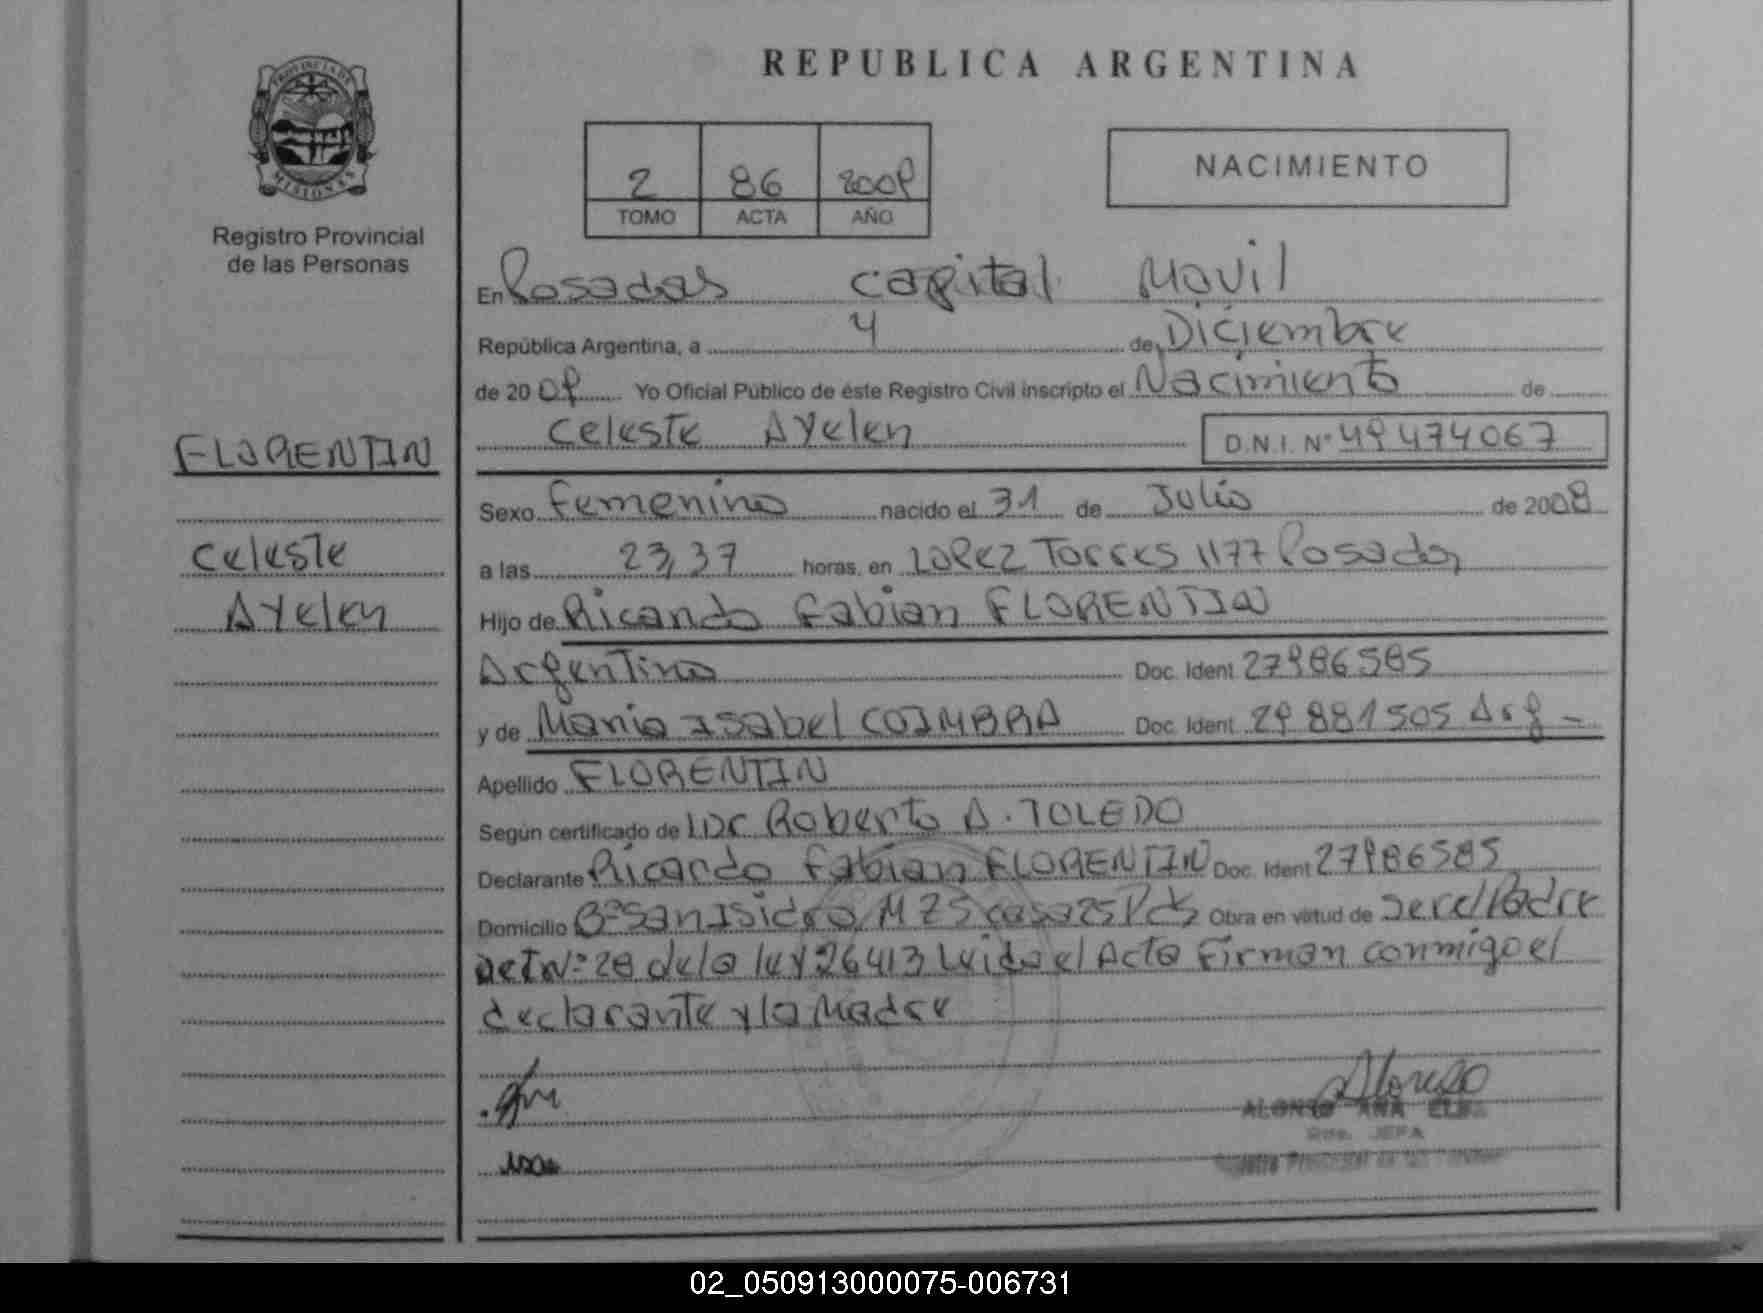 REPUBLICA ARGENTINA
PROVINCIA DE
MISIONES
Registro Provincial
de las Personas
2 86 2009
TOMO ACTA AÑO
NACIMIENTO
En Posadas Capital Movil
República Argentina, a 4 de Diciembre
de 2009 Yo Oficial Público de éste Registro Civil inscripto el Nacimiento de
Celeste Ayelen D.N.I. Nº 49474067
FLORENTIN
Celeste
Ayelen
Sexo Femenino nacido el 31 de Julio de 2008
a las 23,37 horas, en LOPEZ Torres 1177 Posadas
Hijo de Ricardo Fabian FLORENTIN
Argentino Doc. Ident 27986585
y de Maria Isabel COIMBRA Doc. Ident 29881505 Arg -
Apellido FLORENTIN
Según certificado de Roberto A. TOLEDO
Declarante Ricardo Fabian FLORENTIN Doc. Ident 27986585
Domicilio Bº San Isidro Mz5 casa 25 Pdas Obra en virtud de ser el Padre
Art Nº 28 de la ley 26413 Leida el Acta Firman conmigo el
declarante y la Madre
Alonso
ALONSO ANA ELBA
JEFA
02_050913000075-006731